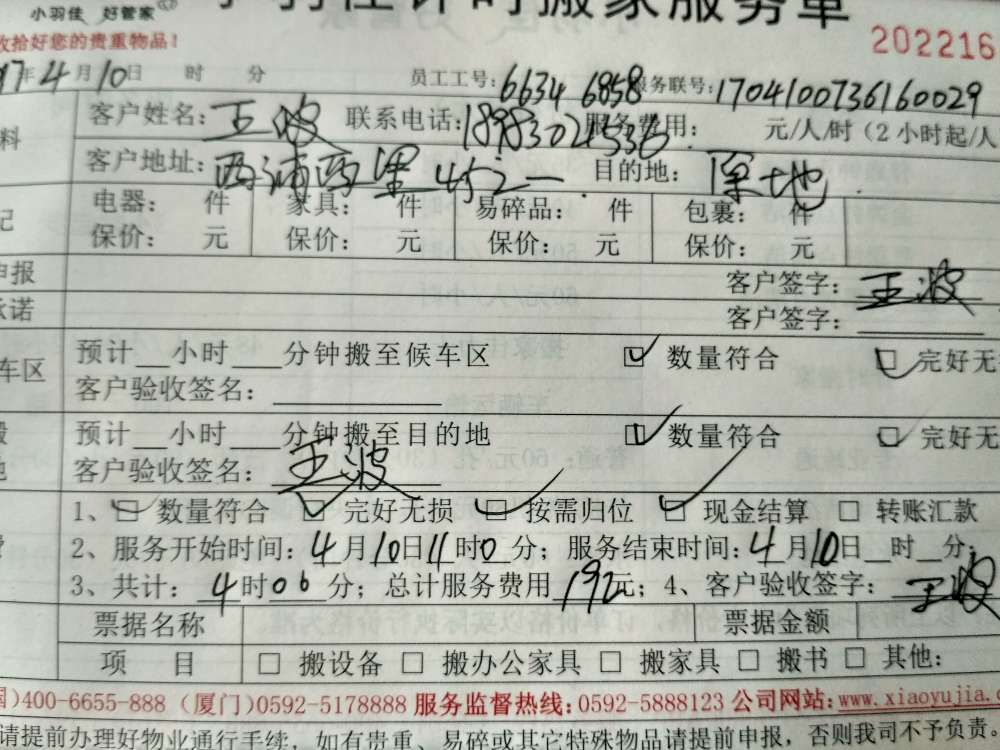 小羽佳 好管家
小羽佳计时搬家服务单
收拾好您的贵重物品!
202216
17年4月10日 时 分 员工工号:66346858 服务联号:1704100736160029
料 客户姓名:王波 联系电话:18983024536 服务费用: 元/人/时(2小时起/人
客户地址:西浦西里45之一 目的地:原地
记 电器: 件 家具: 件 易碎品: 件 包裹: 件
保价: 元 保价: 元 保价: 元 保价: 元
申报 客户签字:王波
承诺 客户签字:
车区 预计__小时___分钟搬至候车区 ☑ 数量符合 ☑ 完好无
客户验收签名:
预计__小时___分钟搬至目的地 ☑ 数量符合 ☑ 完好无
地 客户验收签名:王波
1、☑ 数量符合 ☑ 完好无损 ☑ 按需归位 ☑ 现金结算 □ 转账汇款
2、服务开始时间:4月10日11时0分;服务结束时间:4月10日__时__分;
费 3、共计:4时00分;总计服务费用192元;4、客户验收签字:王波
票据名称 票据金额
项 目 □ 搬设备 □ 搬办公家具 □ 搬家具 □ 搬书 □ 其他:
国)400-6655-888 (厦门)0592-5178888 服务监督热线:0592-5888123 公司网站:www.xiaoyujia.c
请提前办理好物业通行手续,如有贵重、易碎或其它特殊物品请提前申报,否则我司不予负责。